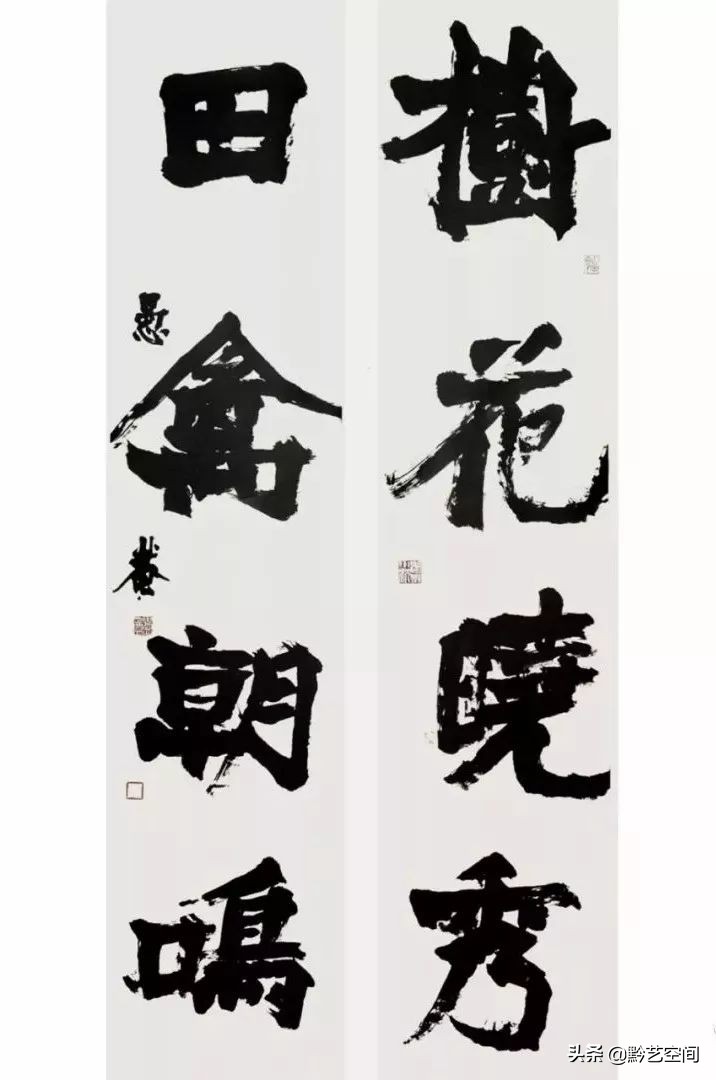 樹花曉秀
田禽朝鳴
头条 @黔艺空间